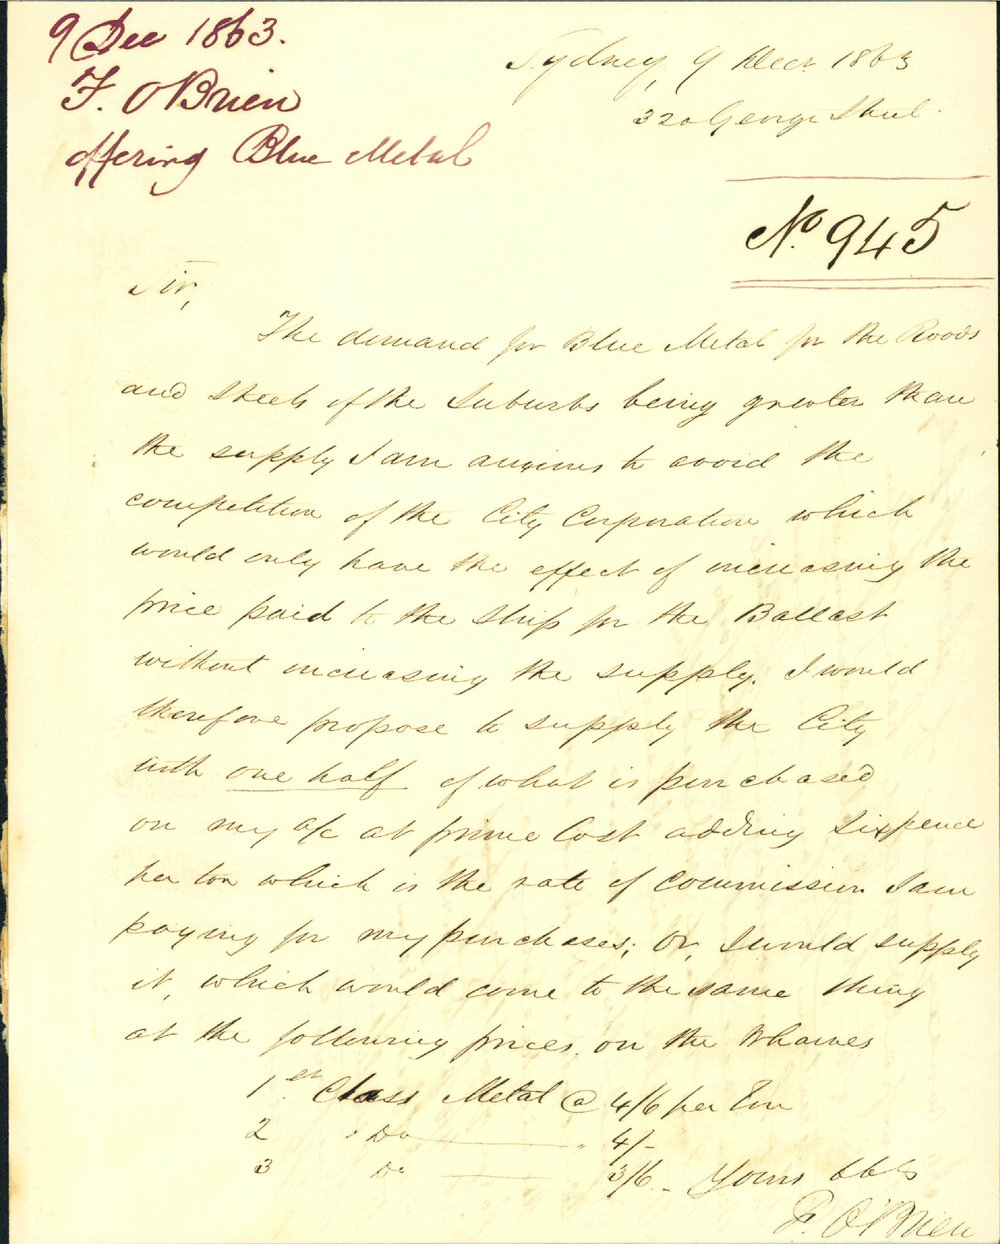 9 Dec 1863.
F. O'Brien
offering Blue Metal
Sydney, 9 Decr. 1863
320 George Street
No. 945
Sir,
The demand for Blue Metal for the Roads
and Streets of the Suburbs being greater than
the supply I am anxious to avoid the
competition of the City Corporation which
would only have the effect of increasing the
price paid to the Ship for the Ballast
without increasing the supply. I would
therefore propose to supply the City
with one half of what is purchased
on my a/c at prime Cost adding sixpence
per ton which is the rate of commission I am
paying for my purchases; Or, I would supply
it, which would come to the same thing
at the following prices, on the Wharves
1st. Class Metal @ 4/6 per Ton
2 " Do " 4/-
3 Do 3/6 - Yours
F. O'Brien